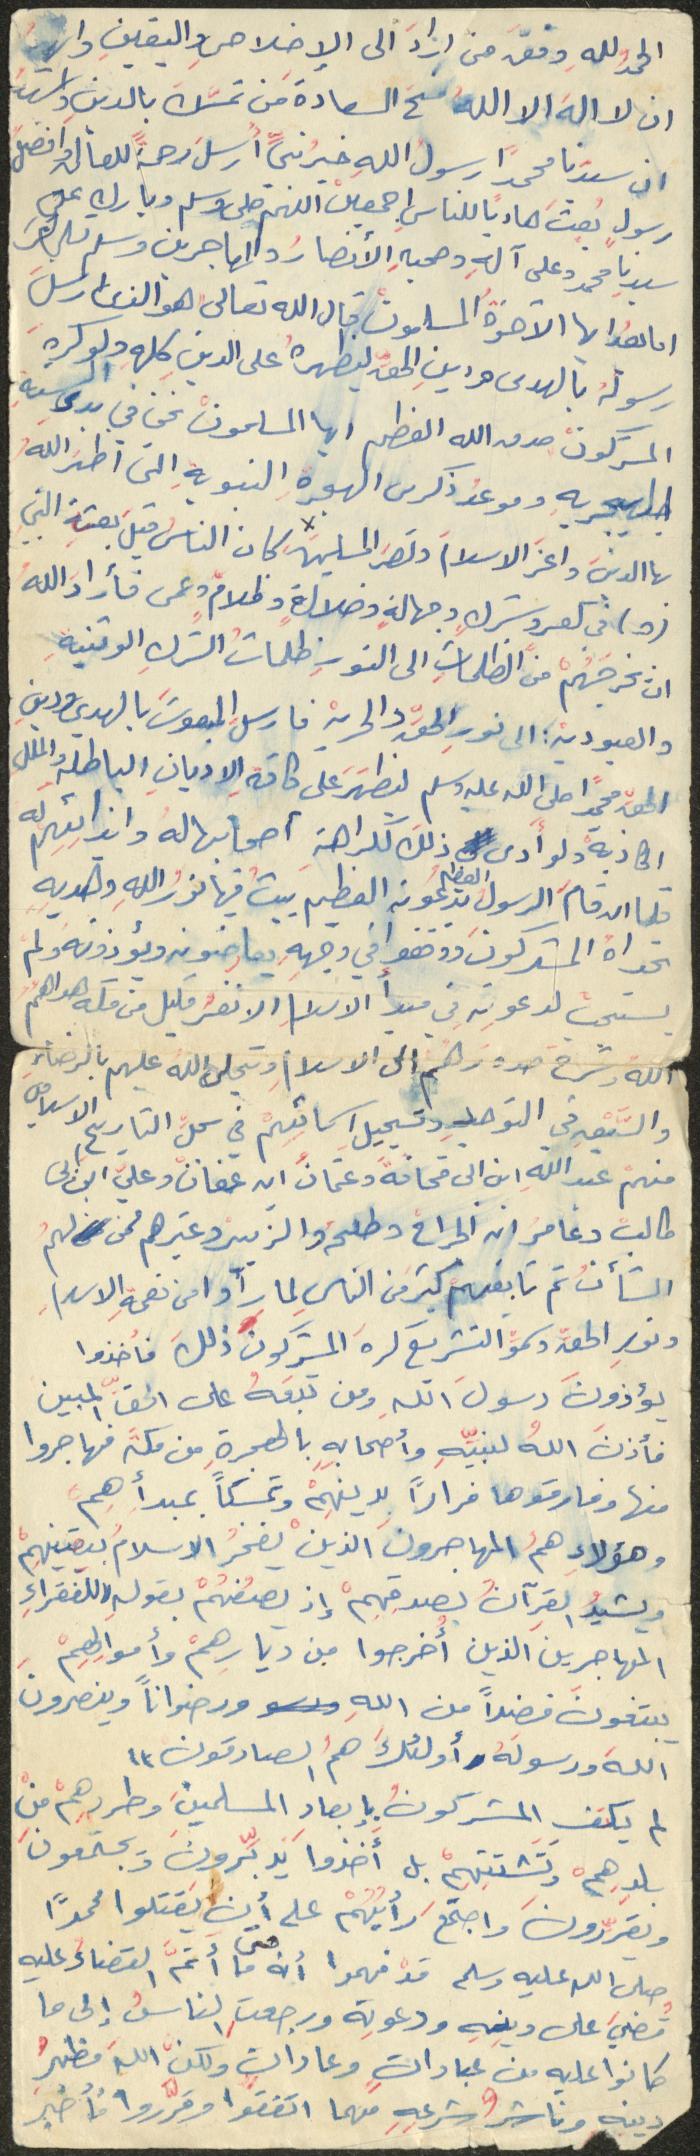 الحمدُ للهِ وفّقَ من ارادَ الى الإخلاصِ واليقينِ
ان لا الهَ الا اللهُ منحَ السعادةَ من تمسّك بالدينِ
ان سيدنا محمدًا رسولُ اللهِ خيرُ نبيٍّ أُرسلَ رحمةً للعالمين وافضلُ
رسولٍ بُعِثَ هاديًا للناسِ اجمعين اللهمّ صلِ وسلم وبارك على
سيدِنا محمدٍ وعلى آلهِ وصحبهِ الأنصارُ والمهاجرين وسلم
اما بعدُ ايها الاخوةُ المسلمون قال الله تعالى هو الذي ارسلَ
رسولَهُ بالهدى ودينِ الحقِّ ليظهرهُ على الدينِ كلهِ ولو كرهِ
المشركونْ صدق الله العظيم ايها المسلمونْ نحنُ في بدءِ السنةِ
الهجريهِ وموعدُ ذكرى الهجرةِ النبويةِ التي اظهرَ اللهُ
بها الدينَ واعزَ الاسلامَ ونصرَ المسلمينَ كان الناسُ قبلَ بعثةِ النبي
(ص) في كفرٍ وشركٍ وجهالةٍ وضلالةٍ وظلامٍ وعمى فأرادَ اللهُ
ان يخرجَهُمْ من الظلماتِ الى النورِ ظلماتُ الشركِ الوثنيةِ
والعبوديةِ: الى نورِ الحقِّ والحريةْ فارسلَ المبعوثَ بالهدى ودينِ
الحقِّ محمدًا صلى الله عليه وسلم ليظهَرَ على كافةِ الاديانِ الباطلةِ والمللِ
الكاذبةْ ولو أدى ذلك لكراهة أصحابها لهُ وايذائِهِم له
فلما ان قامَ الرسولُ العظيم بدعوته العظيم يبثُ فيها نورُ اللهِ وهديه
تحداهُ المشركونَ ووقفوا في وجههِ يعارضونه ويؤذونهَ ولمْ
يستجبْ لدعوتِهِ في مبدأ الاسلامِ الا نفرٌ قليل من مكة هداهمُ
اللهُ وشرحَ صدورَهُم الى الاسلامِ وتجلى اللهُ عليهم بالرضاءِ
والسّبْقِ في التوحيدِ وتسجيلِ اسمائِهمْ في سجلِ التاريخِ الاسلاميِّ
منهمْ عبد اللهِ ابن ابى قحافةَ وعثمانُ ابن عفانْ وعليّ ابن ابى
طالبْ وعامرُ ابن الجراحْ وطلحةُ والزبيرْ وغيرهم ممن لهمُ
الشأنُ ثم تابعهمْ كثيرٌ من الناسِ لما رأوا من نعمةِ الاسلامِ
ونورِ الحقِّ وسموِّ التشريعِ كره المشركونَ ذلكَ فأخذوا
يؤذونَ رسولَ اللهِ ومن تبعَهُ على الحقِّ المبين
فأذنَ اللهُ لنبيِّهِ وأصحابهِ بالهجرةِ من مكةَ فهاجروا
منها وفارقوها فرارًا بدينِهِمْ وتمسكًا بمبدأِهِمْ
وهؤلاءِ همُ المهاجرونَ الذينَ يفخرُ الاسلامُ بيقينِهِمْ
ويشيدُ القرآنُ بصدقِهِمْ إذ يصِفُهُمْ بقولهِ (للفقراءِ
المهاجرين الذين أُخرجوا من ديارِهِمْ وأموالِهِمْ
يبتغونَ فضلاً من اللهِ ورضواناً وينصرونَ
اللهَ ورسولَهُ أولئكَ همُ الصادقونَ))
لم يكتفِ المشركونُ بإبعادِ المسلمينْ وطردِهِمْ منْ
بلدِهِمْ وتَشتيتِهِمْ بل أخذوا يُدبّرونَ ويجتمعونَ
ويقرّرونَ واجتمعَ رأيُهُمْ على أن يَقتلوا محمدًا
صلى الله عليه وسلم قدْ فهموا أنهُ متى ما أُتمَّ القضاءُ عليه
قُضيَ على دينِهِ ودعوتِهِ ورجعتِ الناسُ إلى ما
كانوا عليه من عباداتٍ وعاداتٍ ولكنّ اللهَ مظهرُ
دينه وناشرُ شرعِهِ مهما اتفقوا وقرّروا فأخبرَ